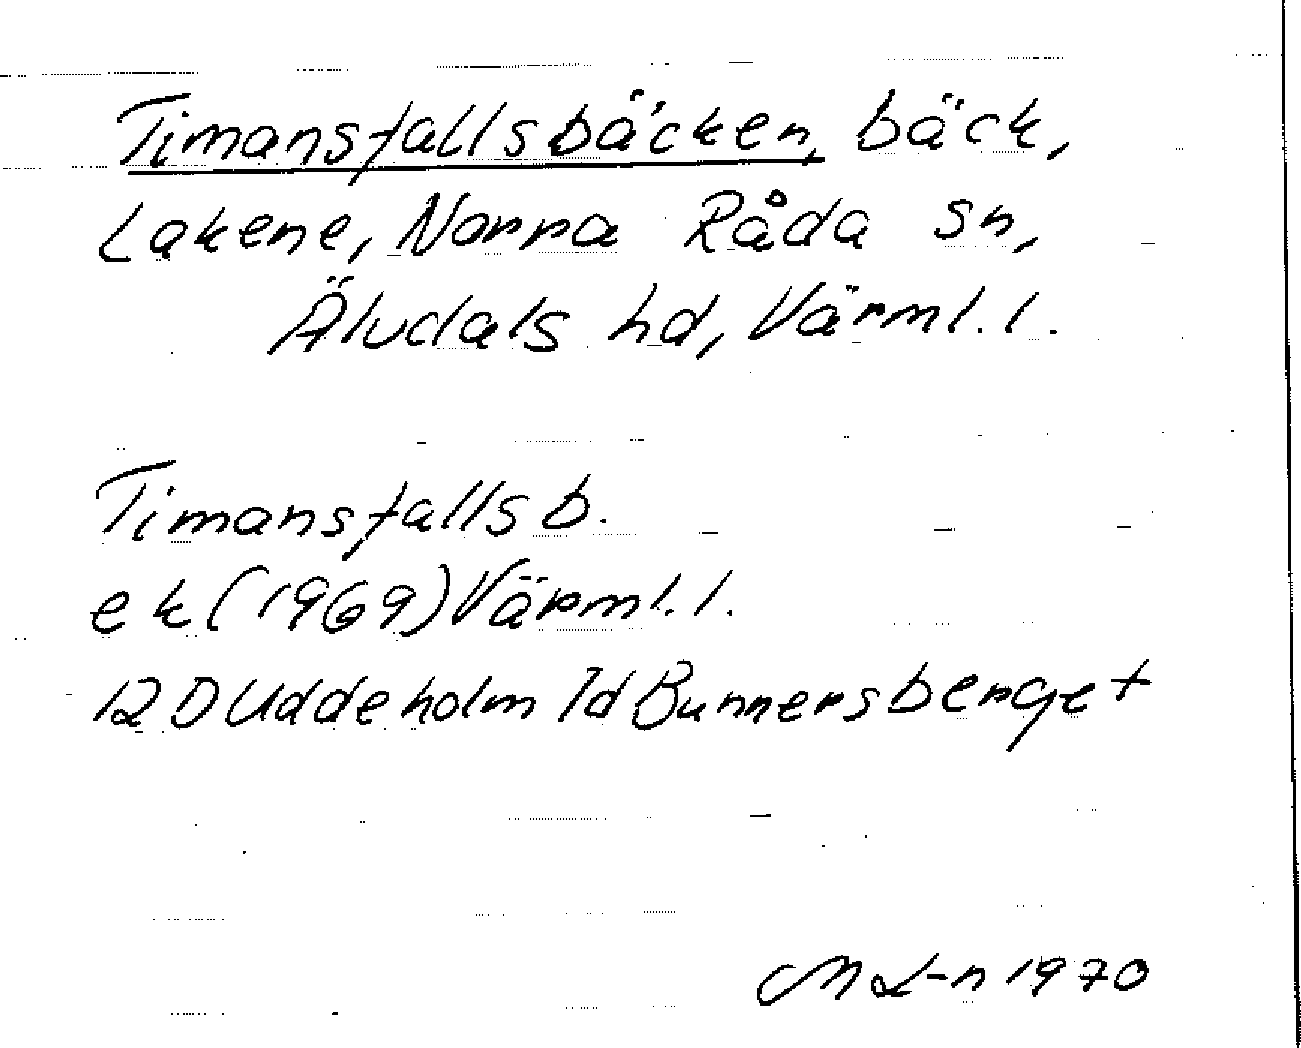 Timansfallsbäcken, bäck,
Lakene, Norra Råda sn,
Älvdals hd, Värml. l.
Timansfalls b.
ek (1969) Värml. l.
12D Uddeholm 7d Bunnersberget
M L-n 1970